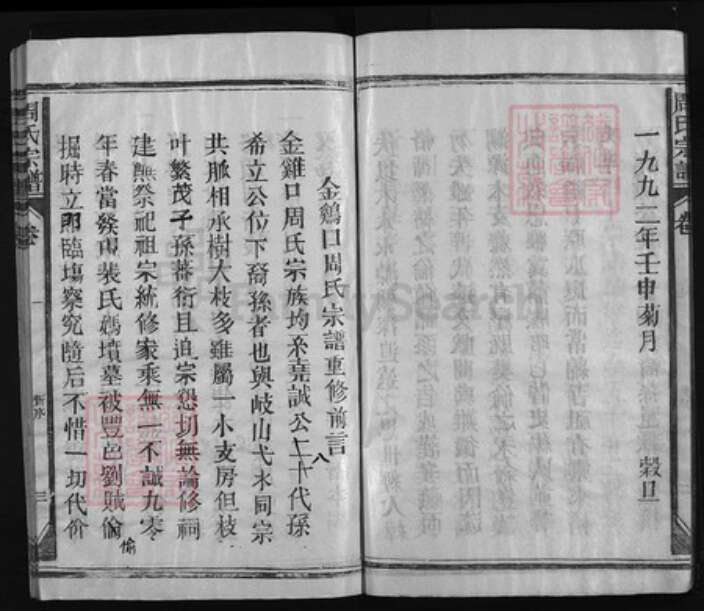 周氏宗譜
卷
一九九二年壬申菊月 穀旦
金鷄口周氏宗譜重修前言
金雞口周氏宗族均系堯誠公二十八代孫
希立公位下裔孫者也與岐山弋末同宗
共脈相承樹大枝多雖屬一小支房但枝
叶繁茂子孫蕃衍且追宗恳切無論修祠
建㷱祭祀祖宗統修家乘無一不誠九零
年春當發現裴氏媽墳墓被豐邑劉賊偷
掘時立即臨塲察究隨后不惜一切代价
周氏宗譜
卷
一
新序
三
FamilySearch